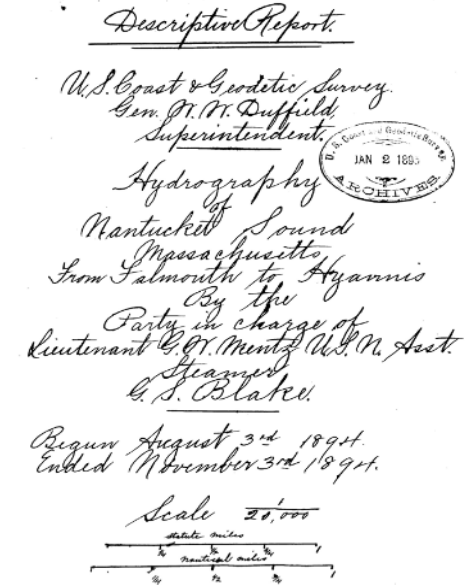 Descriptive Report.
U.S. Coast & Geodetic Survey.
Gen. W. W. Duffield,
Superintendent.
U. S. Coast and Geodetic Survey.
JAN 2 1895
ARCHIVES.
Hydrography
of
Nantucket Sound
Massachusetts
From Falmouth to Hyannis
By the
Party in charge of
Lieutenant G. W. Mentz U.S.N. Asst.
Steamer
G. S. Blake.
Begun August 3rd 1894.
Ended November 3rd 1894.
Scale 1/20,000
statute miles
1/4 1/2 3/4 1
nautical miles
1/4 1/2 3/4 1